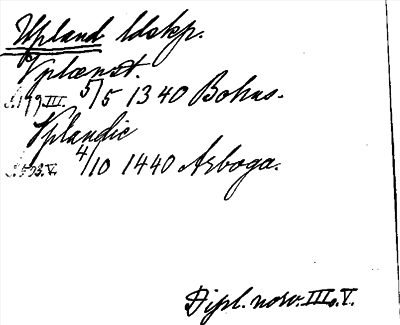 Upland ldskp.
Vplænst.
s. 199. III. 5/5 1340 Bohus.
Vplandie
s. 503. V. 4/10 1440 Arboga.
Dipl. norv. III o. V.